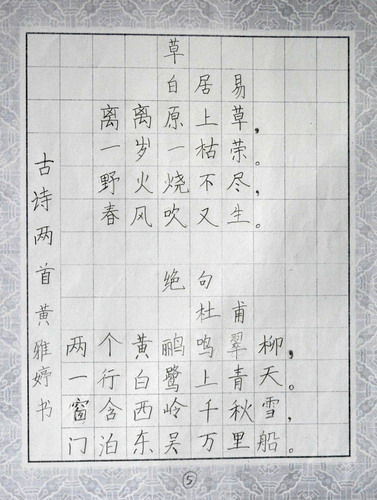 草
白居易
离离原上草，
一岁一枯荣。
野火烧不尽，
春风吹又生。
绝句
杜甫
两个黄鹂鸣翠柳，
一行白鹭上青天。
窗含西岭千秋雪，
门泊东吴万里船。
古诗两首黄雅婷书
⑤